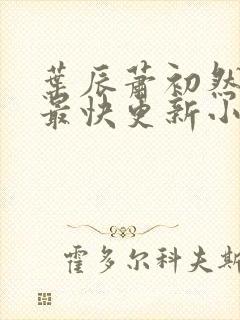 葉辰蕭初然
最快更新小
霍多尔科夫斯